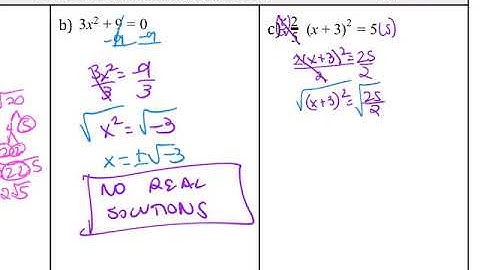 √20
5
2√5
b) 3x² + 9 = 0
-9 -9
3x²/3 = -9/3
√x² = √-3
x = ±√-3
NO REAL
SOLUTIONS
c) 2/5 (x + 3)² = 5(5)
2(x+3)²/2 = 25/2
√(x+3)² = √25/2